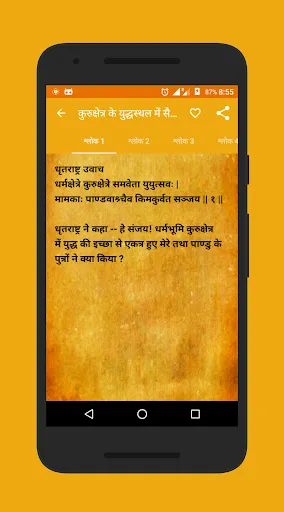 87% 8:55
कुरुक्षेत्र के युद्धस्थल में सै...
श्लोक 1 श्लोक 2 श्लोक 3 श्लोक 4
धृतराष्ट्र उवाच
धर्मक्षेत्रे कुरुक्षेत्रे समवेता युयुत्सवः |
मामकाः पाण्डवाश्चैव किमकुर्वत सञ्जय || १ ||
धृतराष्ट्र ने कहा -- हे संजय! धर्मभूमि कुरुक्षेत्र
में युद्ध की इच्छा से एकत्र हुए मेरे तथा पाण्डु के
पुत्रों ने क्या किया ?